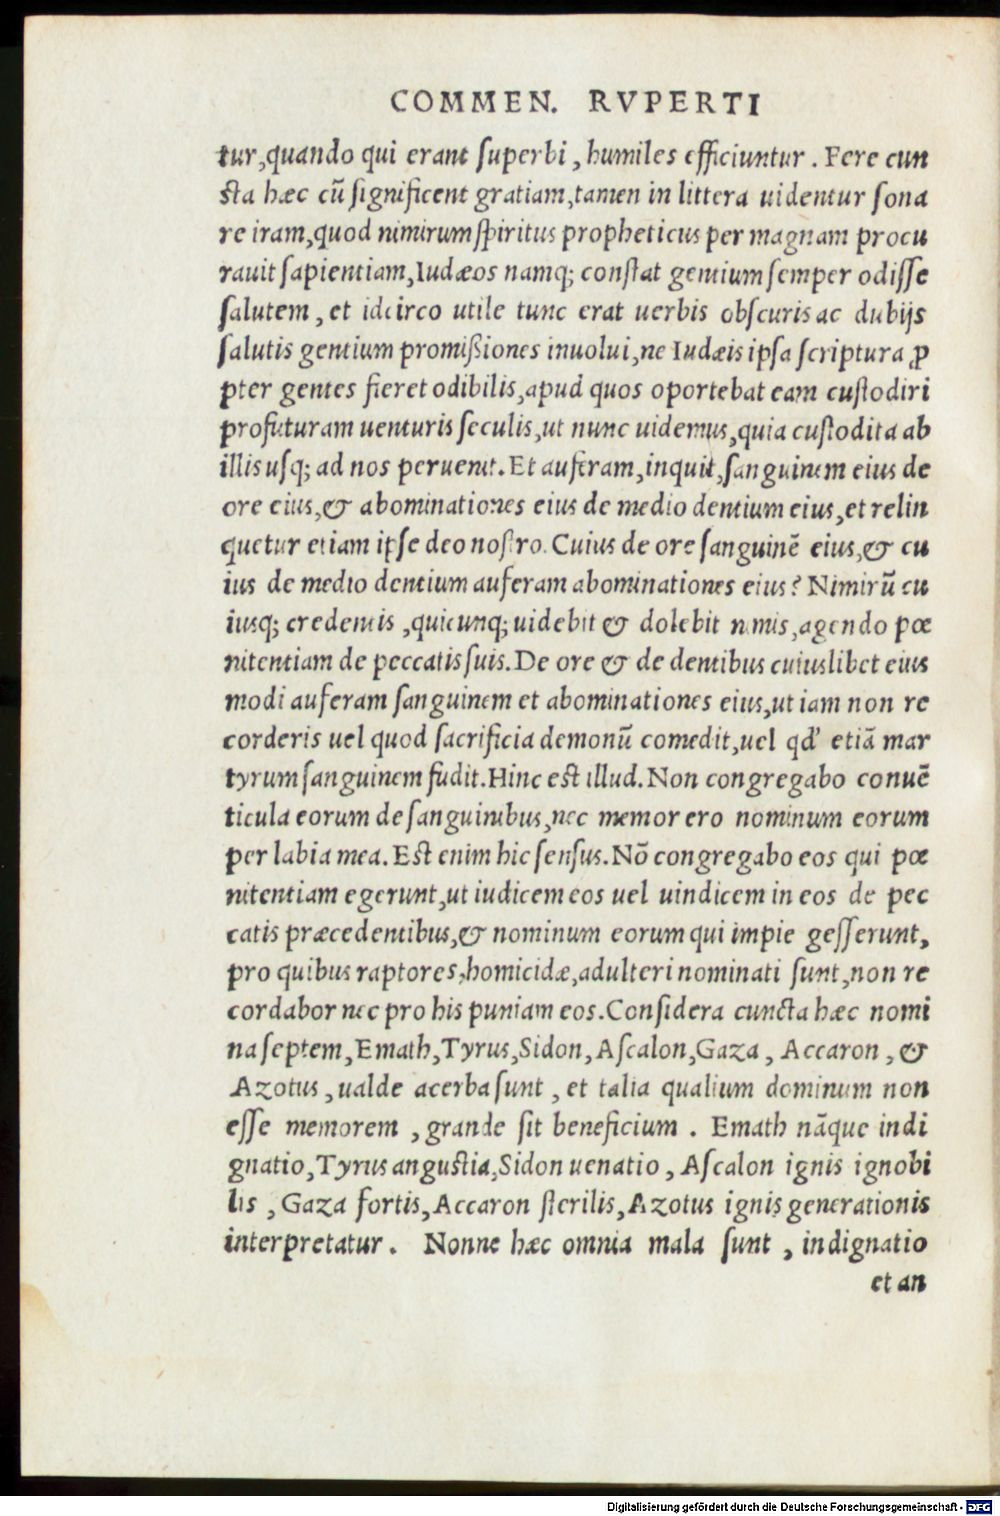 COMMEN. RVPERTI
tur, quando qui erant ſuperbi, humiles efficiuntur. Fere cun
cta hæc cū ſignificent gratiam, tamen in littera uidentur ſona
re iram, quod nimirum ſpiritus propheticus per magnam procu
rauit ſapientiam, Iudæos namq; conſtat gentium ſemper odiſſe
ſalutem, et idcirco utile tunc erat uerbis obſcuris ac dubijs
ſalutis gentium promißiones inuolui, ne Iudæis ipſa ſcriptura ꝓ
pter gentes fieret odibilis, apud quos oportebat eam cuſtodiri
profuturam uenturis ſeculis, ut nunc uidemus, quia cuſtodita ab
illis uſq; ad nos peruenit. Et auferam, inquit, ſanguinem eius de
ore eius, & abominationes eius de medio dentium eius, et relin
quetur etiam ipſe deo noſtro. Cuius de ore ſanguinē eius, & cu
ius de medio dentium auferam abominationes eius? Nimirū cu
iusq; credentis, quicunq; uidebit & dolebit nimis, agendo pœ
nitentiam de peccatis ſuis. De ore & de dentibus cuiuslibet eius
modi auferam ſanguinem et abominationes eius, ut iam non re
corderis uel quod ſacrificia demonū comedit, uel qd' etiā mar
tyrum ſanguinem fudit. Hinc eſt illud. Non congregabo conuē
ticula eorum de ſanguinibus, nec memor ero nominum eorum
per labia mea. Eſt enim hic ſenſus. Nō congregabo eos qui pœ
nitentiam egerunt, ut iudicem eos uel uindicem in eos de pec
catis præcedentibus, & nominum eorum qui impie geſſerunt,
pro quibus raptores, homicidæ, adulteri nominati ſunt, non re
cordabor nec pro his puniam eos. Conſidera cuncta hæc nomi
na ſeptem, Emath, Tyrus, Sidon, Aſcalon, Gaza, Accaron, &
Azotus, ualde acerba ſunt, et talia qualium dominum non
eſſe memorem, grande ſit beneficium. Emath nāque indi
gnatio, Tyrus anguſtia, Sidon uenatio, Aſcalon ignis ignobi
lis, Gaza fortis, Accaron ſterilis, Azotus ignis generationis
interpretatur. Nonne hæc omnia mala ſunt, indignatio
et an
Digitalisierung gefördert durch die Deutsche Forschungsgemeinschaft - DFG